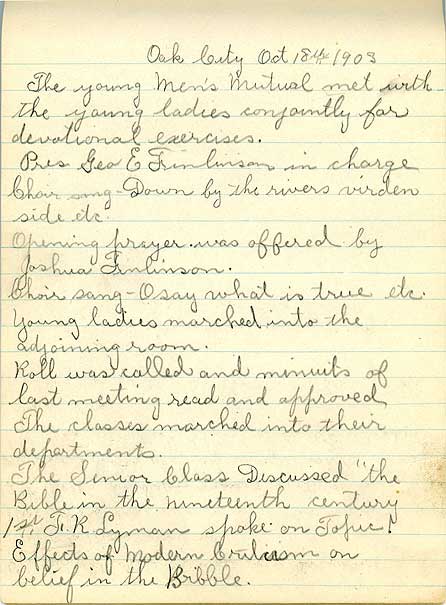 Oak City Oct 18th 1903
The young Men's Mutual met with
the young ladies conjointly for
devotional exercises.
Pres Geo E Finlinson in charge
Choir sang - Down by the rivers virden
side etc.
Opening prayer was offered by
Joshua Finlinson.
Choir sang - O say what is true etc.
Young ladies marched into the
adjoining room.
Roll was called and minuits of
last meeting read and approved
The classes marched into their
departments.
The Senior Class Discussed "the
Bible in the nineteenth century
1st F. R Lyman spoke on Topic!
Effects of Modern Criticism on
belief in the Bibble.